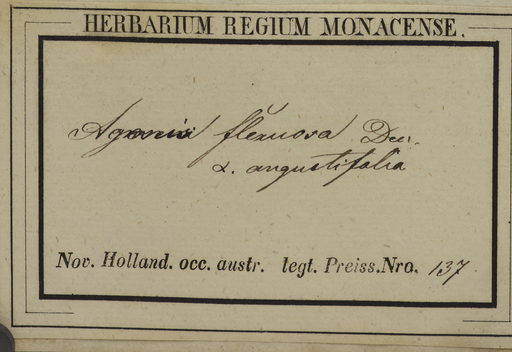 HERBARIUM REGIUM MONACENSE.
Agonis flexuosa Dec.
α. angustifolia
Nov. Holland. occ. austr. legt. Preiss. Nro. 137.